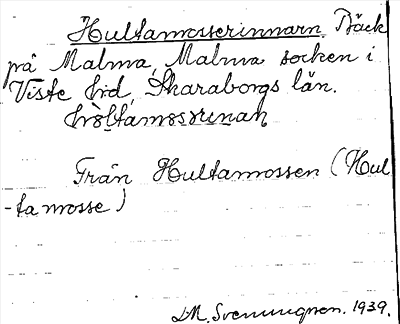 Hultamosserinnarn Bäck
på Malma, Malma socken i
Viste hd, Skaraborgs län.
Från Hultamossen (Hul
-tamosse)
M. Svenungson. 1939.